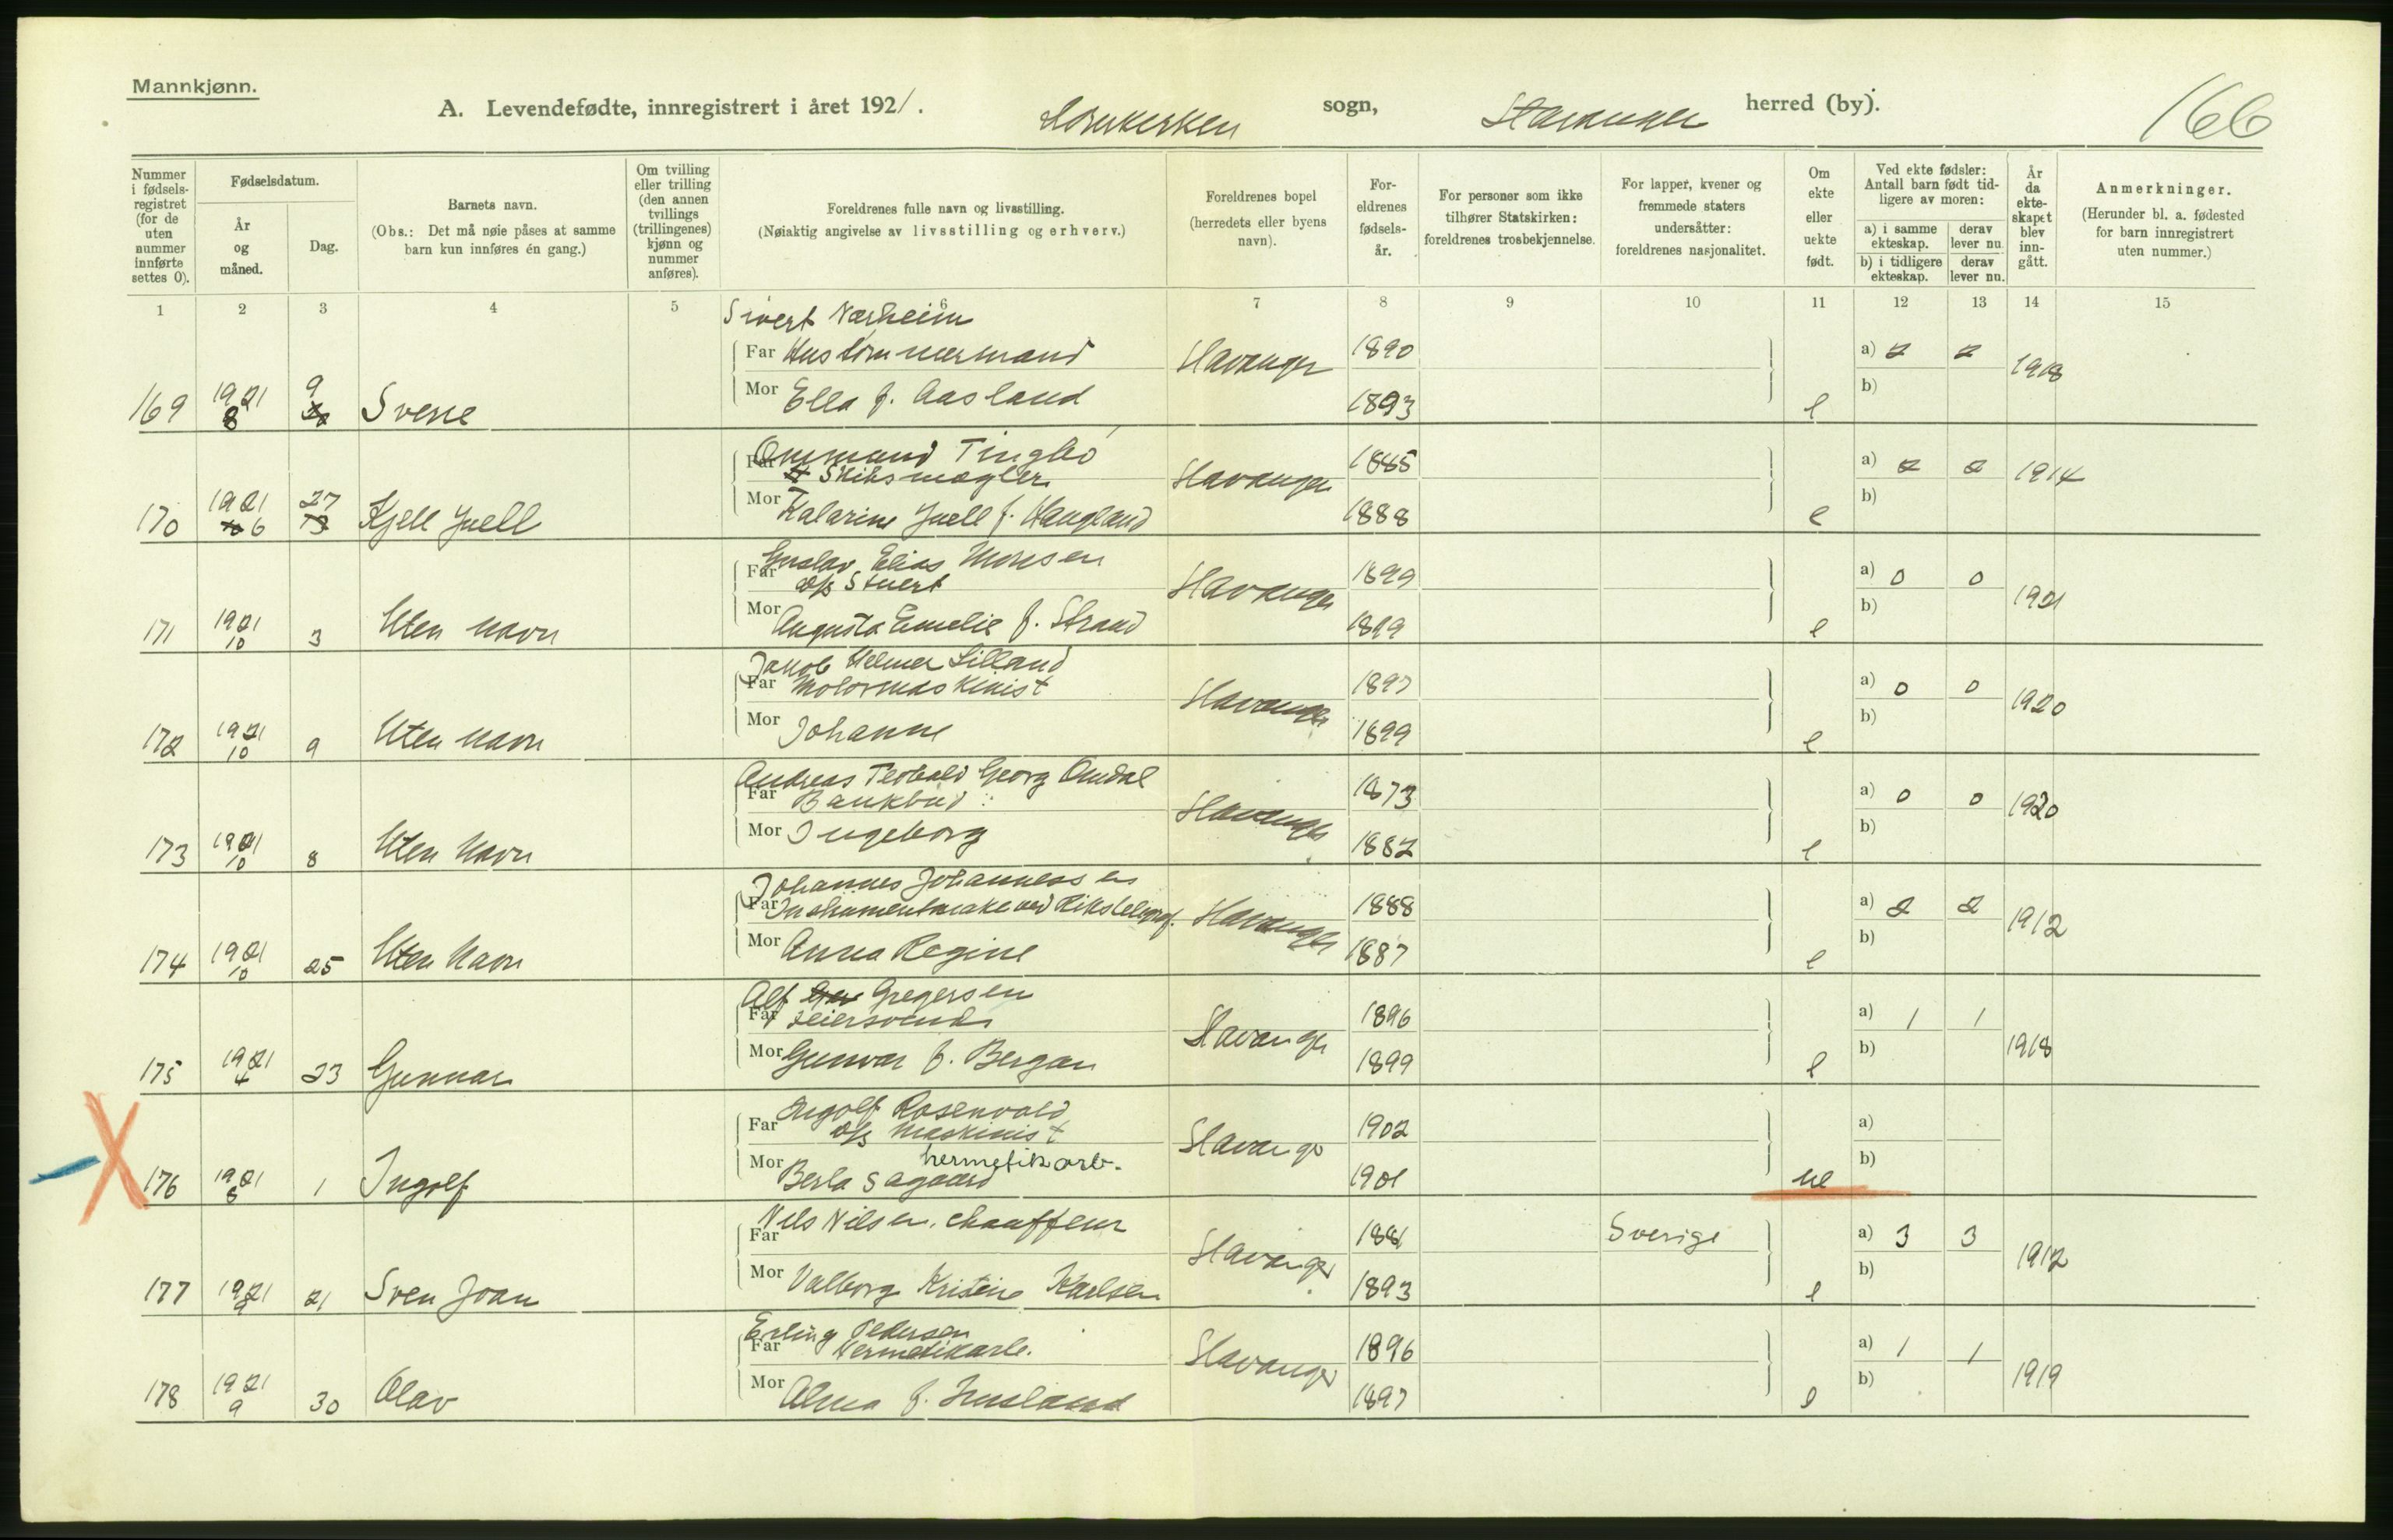 Mannkjønn.
A. Levendefødte, innregistrert i året 1921. Domkirken sogn, Stavanger herred (by). 166
Nummer i fødsels-registret (for de uten nummer innførte settes 0).
Fødselsdatum.
År og måned.
Dag.
Barnets navn.
(Obs.: Det må nøie påses at samme barn kun innføres én gang.)
Om tvilling eller trilling (den annen tvillings (trillingenes) kjønn og nummer anføres).
Foreldrenes fulle navn og livsstilling.
(Nøiaktig angivelse av livsstilling og erhverv.)
Foreldrenes bopel (herredets eller byens navn).
For-eldrenes fødsels-år.
For personer som ikke tilhører Statskirken: foreldrenes trosbekjennelse.
For lapper, kvener og fremmede staters undersåtter: foreldrenes nasjonalitet.
Om ekte eller uekte født.
Ved ekte fødsler: Antall barn født tid-ligere av moren:
a) i samme ekteskap.
derav lever nu.
b) i tidligere ekteskap.
derav lever nu.
År da ekte-skapet blev inn-gått.
Anmerkninger.
(Herunder bl. a. fødested for barn innregistrert uten nummer.)
1 2 3 4 5 6 7 8 9 10 11 12 13 14 15
Sivert Nærheim
Far Hustømmermand Stavanger 1890 a) 2 2 1918
Mor Ella f. Aasland 1893 b)
169 1921 8 9 Sverre e
Ommund Tingbø
Far Skibsmægler Stavanger 1885 a) 2 2 1914
Mor Katarine Juell f. Haugland 1888 b)
170 1921 6 27 Kjell Juell e
Gustav Elias Monsen
Far d/s Stuert Stavanger 1899 a) 0 0 1921
Mor Augusta Emelie f. Strand 1899 b)
171 1921 10 3 Uten navn e
Jakob Helmer Lilland
Far Motormaskinist Stavanger 1897 a) 0 0 1920
Mor Johanne 1899 b)
172 1921 10 9 Uten navn e
Andreas Teobald Georg Omdal
Far Bankbud Stavanger 1873 a) 0 0 1920
Mor Ingeborg 1882 b)
173 1921 10 8 Uten Navn e
Johannes Johannessen
Far Instrumentmaker ved Rikstelegraf. Stavanger 1888 a) 2 2 1912
Mor Anna Regine 1887 b)
174 1921 10 25 Uten Navn e
Alf Gregersen
Far Feiersvend Stavanger 1896 a) 1 1 1918
Mor Gunvor f. Bergan 1899 b)
175 1921 4 23 Gunnar e
Ingolf Rosenvold
Far d/s Maskinist Stavanger 1902 a)
hermetikarb.
Mor Berta Sagaard 1901 b)
176 1921 8 1 Ingolf ue
Nils Nilsen, chauffeur
Far Stavanger 1881 Sverige a) 3 3 1912
Mor Valborg Kristine Karlsen 1893 b)
177 1921 9 21 Sven Joan e
Erling Pedersen
Far Hermetikarb. Stavanger 1896 a) 1 1 1919
Mor Alma f. Jusland 1897 b)
178 1921 9 30 Olav e